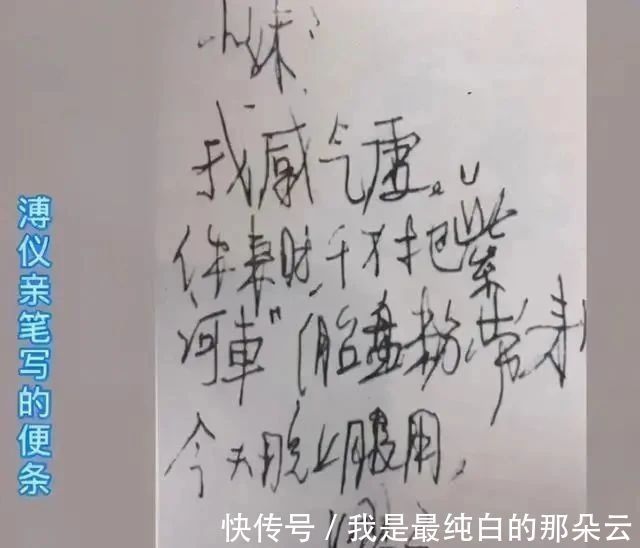 小妹：
我感气虚。
你来时，千万把“紫
河車”（胎盘粉带来
今天晚上服用，
溥仪亲笔写的便条
快传号/我是最纯白的那朵云